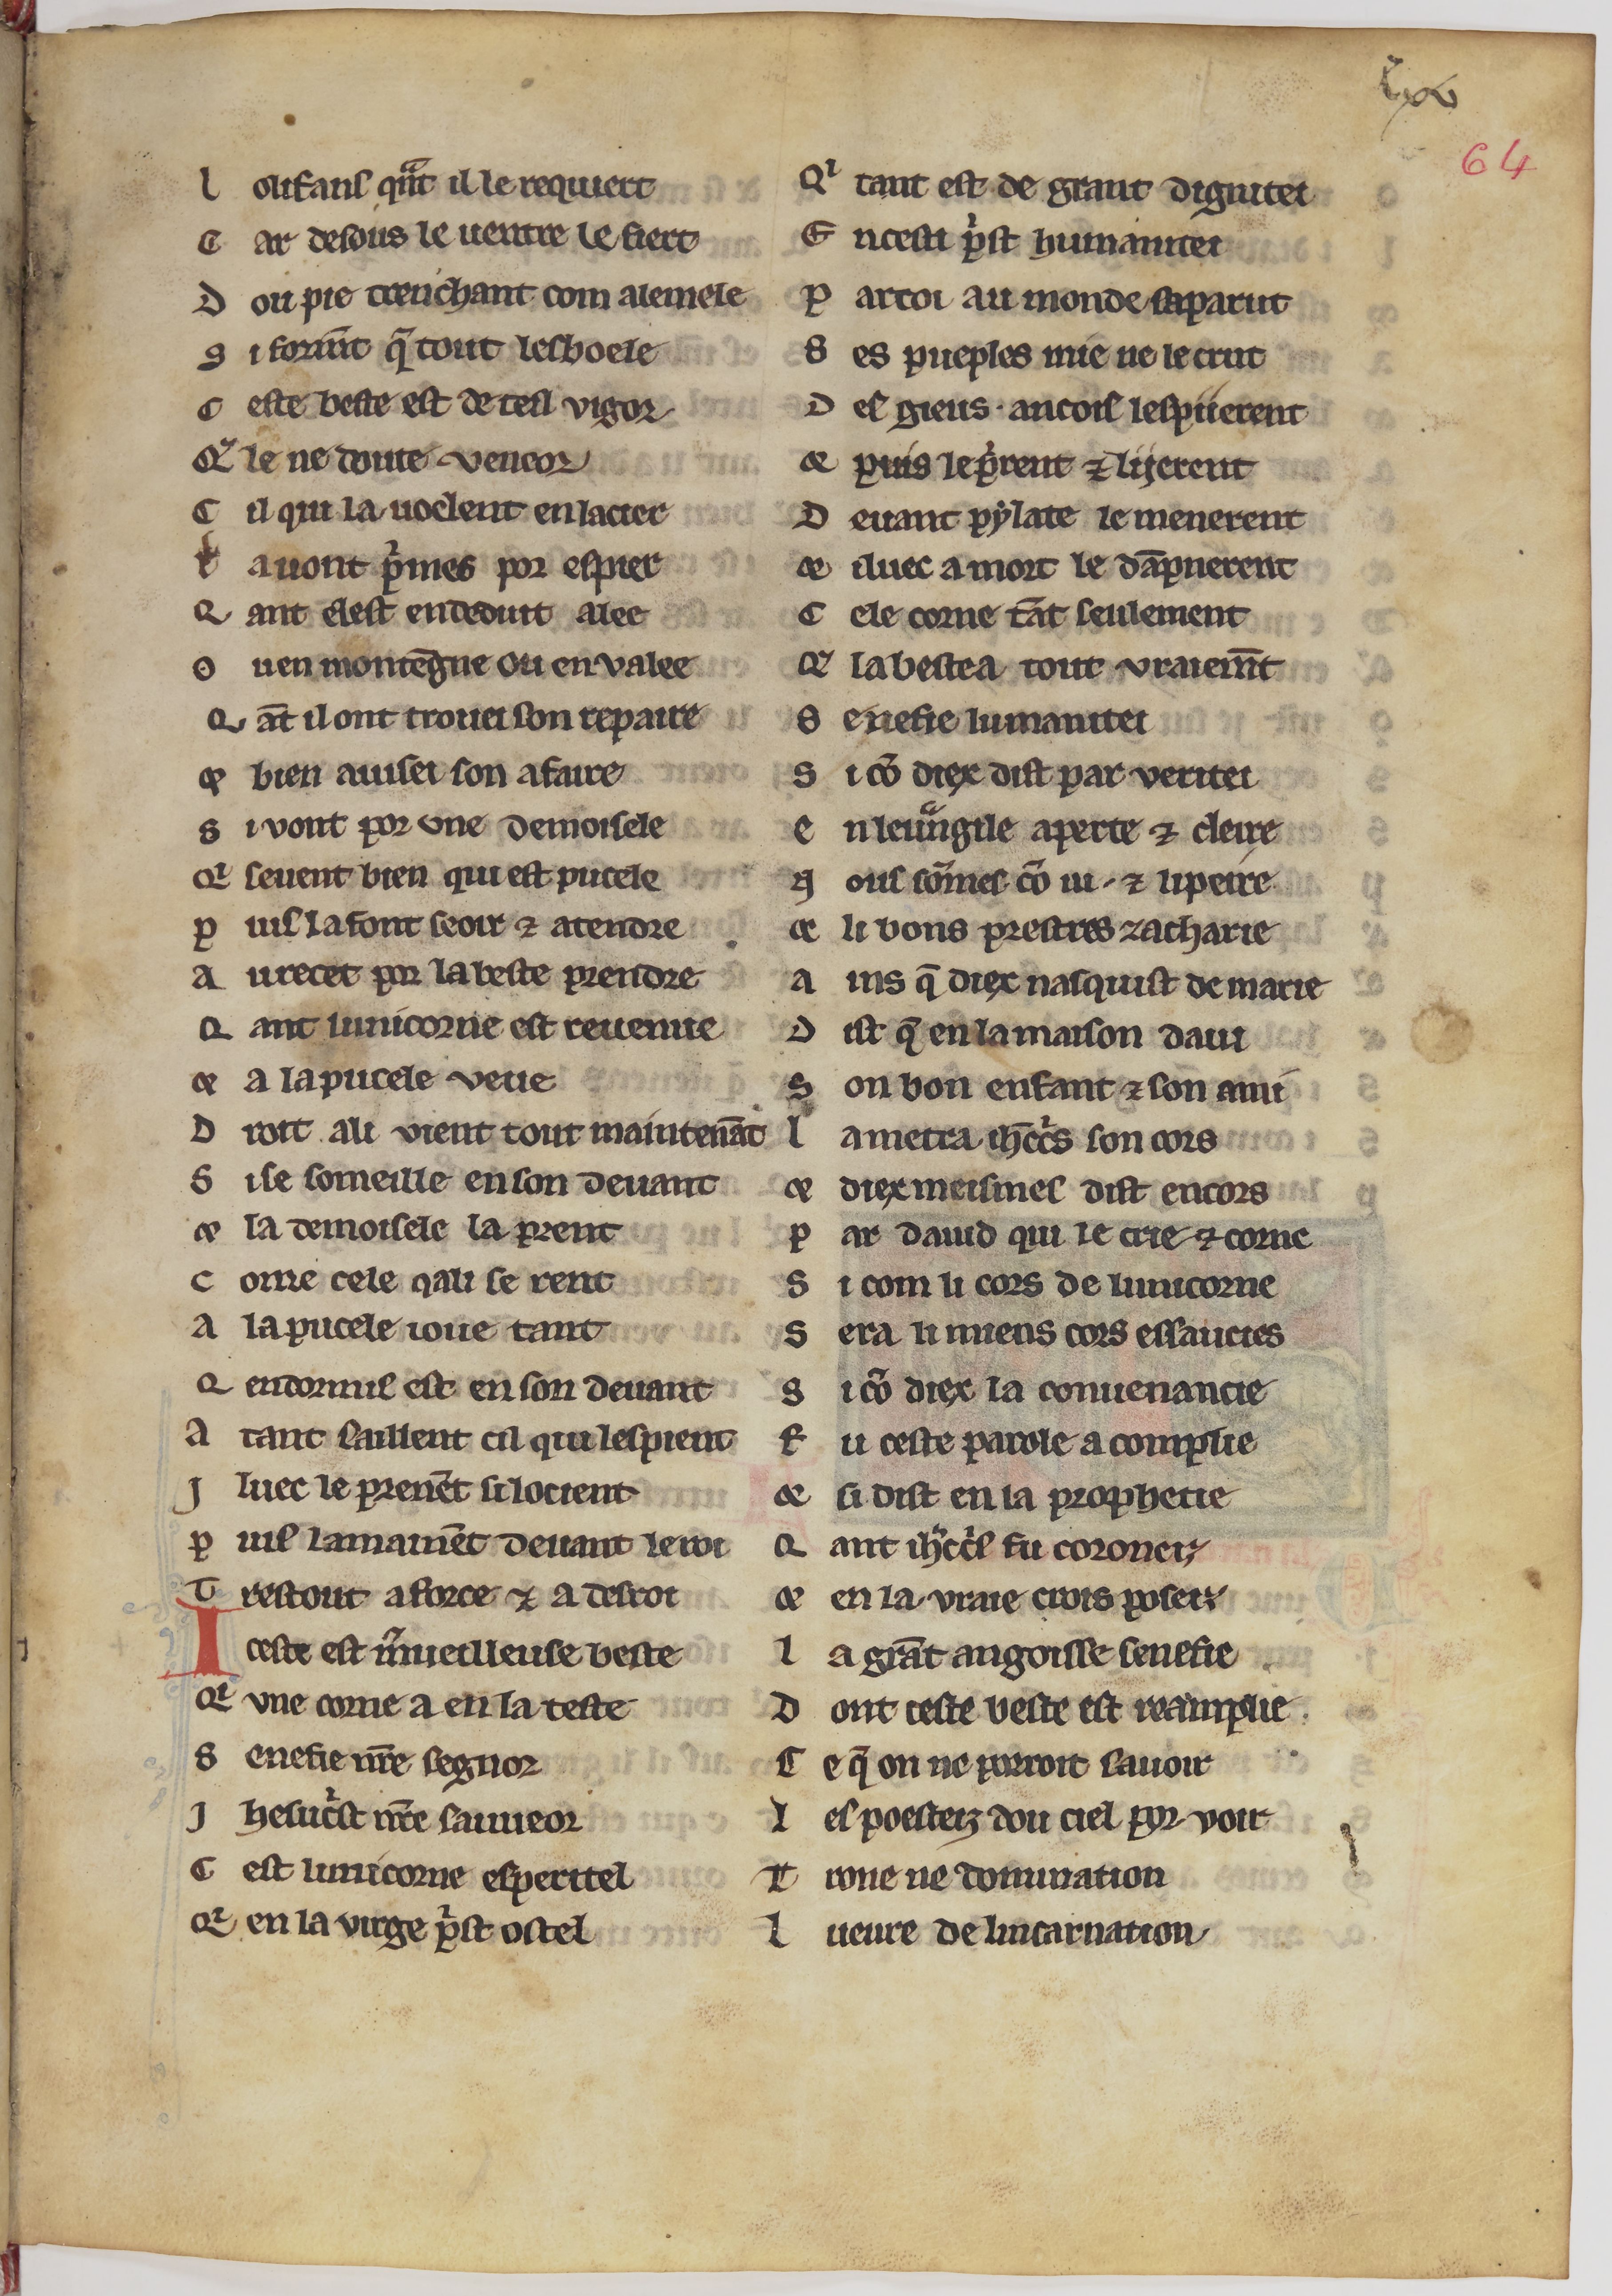 lx
64
l olifans qᵃnt il le requiert
C ar desous le uentre le fiert
D ou pie trenchant com alemele
S i formt̄ q̄ tout lesboele
C este beste est de teil vigor
Qʾ le ne doute veneor
C il qui la uoelent enlacier
l auont pⁱmes por espier
Q ant elest endeduit alee
O u en montēgne ou en valee
Q āt il ont trouei son repaire
⁊ bien auisei son afaire
S i vont por vne demoisele
Qⁱ seuent bien qui est pucele
P uis la font seoir ⁊ atendre
A u recet por la beste prendre
Q ant lunicorne est reuenue
⁊ a la pucele veue
D roit a li vient tout maintenāt
S i se someille en son deuant
⁊ la demoisele la prent
C ome cele qali se rent
A la pucele ioue tant
Q endormis est en son deuant
A tant saillent cil qui lespient
J luec le prenēt si locient
P uis lamainēt deuant le roi
T restout a force ⁊ a desroi
I ceste est mᷓueilleuse beste
Qⁱ vne corne a en la teste
S enefie nr̄e segnor
J hesucⁱst nr̄e sauueor
C est lunicorne esperitel
Qⁱ en la virge pⁱst ostel
Qⁱ tant est de grant dignitei
E ncesti pⁱst humanitei
P ar toi au monde saparut
S es pueples mie ne le crut
D es gieus · ancois lespiierent
⁊ puis le pⁱrent ⁊ liierent
D euant pylate le menerent
⁊ iluec a mort le dāpnerent
C ele corne tāt seulement
Qʾ la beste a tout vraiemt̄
S enefie lumanitei
S i cō diex dist par veritei
E n leuᵃngile aperte ⁊ cleire
N ous sōmes cō iu · ⁊ li peire
⁊ li bons prestres zacharie
A ins q̄ diex nasquist de marie
D ist q̄ en la maison daui
S on bon enfant ⁊ son ami
L a metra ih̄cⁱs son cors
⁊ diex meismes dist encors
P ar dauid qui le crie ⁊ corne
S i com li cors de lunicorne
S era li miens cors essaucies
S i cō diex la conuenancie
F u ceste parole a complie
⁊ si dist en la prophecie
Q ant ih̄cⁱs fu coronez
⁊ en la vraie crois posez
L a grāt angoisse senefie
D ont ceste beste est reamplie
C e q̄ on ne porroit sauoir
L es poesteiz dou ciel por voir
T rone ne domination
L ueure de lincarnation